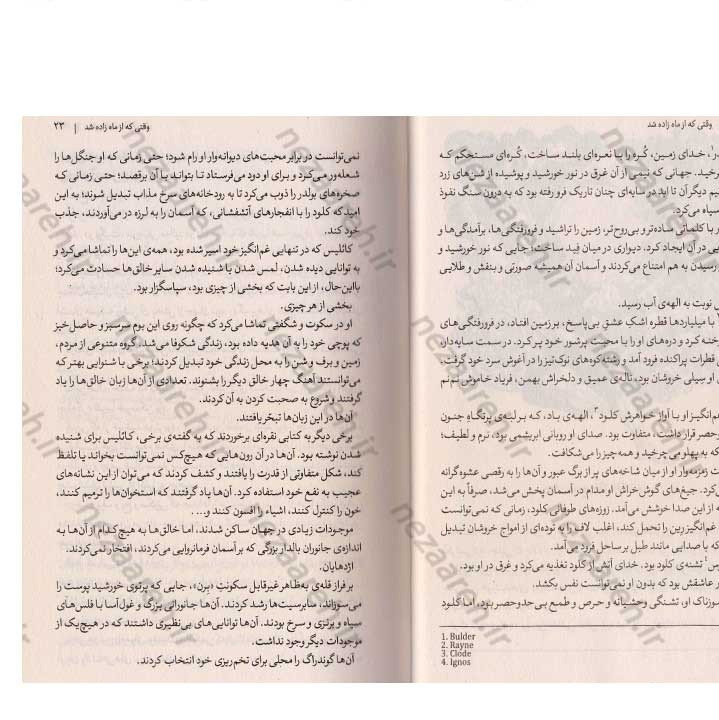 وقتی که از ماه زاده شد
، خدای زمین، کُره را با نعره‌ای بلند ساخت، کُره‌ای مستحکم که
جهانی که نیمی از آن غرق در نور خورشید و پوشیده از شن‌های زرد
دیگر آن تا ابد در سایه‌ای چنان تاریک فرو رفته بود که به درون سنگ نفوذ
سیاه می‌کرد.
با کلماتی ساده‌تر و بی‌روح‌تر، زمین را تراشید و فرورفتگی‌ها، برآمدگی‌ها و
در آن ایجاد کرد. دیواری در میان فِید ساخت؛ جایی که نور خورشید و
رسیدن به هم امتناع می‌کردند و آسمان آن همیشه صورتی و بنفش و طلایی
نوبت به الهه‌ی آب رسید.
با میلیاردها قطره اشکِ عشقِ بی‌پاسخ، بر زمین افتاد، در فرورفتگی‌های
رخنه کرد و دره‌های او را با محبت پرشور خود پر کرد. در سمت سایه‌دار،
قطرات پراکنده فرود آمد و رشته‌کوه‌های نوک‌تیز را در آغوش سرد خود گرفت.
او سیلی خروشان بود، ناله‌ی عمیق و دلخراش بهمن، فریاد خاموش نم‌نم
انگیز او با آواز خواهرش کلود۳، الهه‌ی باد، که بر لبه‌ی پرتگاهِ جنون
حصر قرار داشت، متفاوت بود. صدای او روبانی ابریشمی بود، نرم و لطیف؛
که به پهلو می‌چرخید و همه‌چیز را می‌شکافت.
زمزمه‌وار او از میان شاخه‌های پر از برگ عبور و آن‌ها را به رقصی عشوه‌گرانه
جیغ‌های گوش‌خراش او مدام در آسمان پخش می‌شد، صرفاً به این
از این صدا خوشش می‌آمد. زوزه‌های طوفانی کلود، زمانی که نمی‌توانست
غم‌انگیز رِین را تحمل کند، اغلب لاف را به توده‌ای از امواج خروشان تبدیل
که با صدایی مانند طبل بر ساحل فرود می‌آمد.
تشنه‌ی کلود بود. خدای آتش از کلود تغذیه می‌کرد و غرق در او بود.
عاشقش بود که بدون او نمی‌توانست نفس بکشد.
سوزناک او، تشنگی وحشیانه و حرص و طمع بی‌حدوحصر بود، اما کلود
1. Bulder
2. Rayne
3. Clode
4. Ignos
وقتی که از ماه زاده شد | ۲۳
نمی‌توانست در برابر محبت‌های دیوانه‌وار او رام شود؛ حتی زمانی که او جنگل‌ها را
شعله‌ور می‌کرد و برای او دود می‌فرستاد تا بتواند با آن برقصد؛ حتی زمانی که
صخره‌های بولدر را ذوب می‌کرد تا به رودخانه‌های سرخ مذاب تبدیل شوند؛ به این
امید که کلود را با انفجارهای آتشفشانی، که آسمان را به لرزه در می‌آوردند، جذب
خود کند.
کائلیس که در تنهایی غم‌انگیز خود اسیر شده بود، همه‌ی این‌ها را تماشا می‌کرد و
به توانایی دیده شدن، لمس شدن یا شنیده شدن سایر خالق‌ها حسادت می‌کرد؛
بااین‌حال، از این بابت که بخشی از چیزی بود، سپاسگزار بود.
بخشی از هر چیزی.
او در سکوت و شگفتی تماشا می‌کرد که چگونه روی این بوم سرسبز و حاصل‌خیز
که پوچی خود را به آن هدیه داده بود، زندگی شکوفا می‌شد. گروه متنوعی از مردم،
زمین و برف و شن را به محل زندگی خود تبدیل کردند؛ برخی با شنوایی بهتر که
می‌توانستند آهنگ چهار خالق دیگر را بشنوند. تعدادی از آن‌ها زبان خالق‌ها را یاد
گرفتند و شروع به صحبت کردن به آن کردند.
آن‌ها در این زبان‌ها تبحّر یافتند.
برخی دیگر به کتابی نقره‌ای برخوردند که به گفته‌ی برخی، کائلیس برای شنیده
شدن نوشته بود. آن‌ها در آن رون‌هایی که هیچ‌کس نمی‌توانست بخواند یا تلفظ
کند، شکل متفاوتی از قدرت را یافتند و کشف کردند که می‌توان از این نشانه‌های
عجیب به نفع خود استفاده کرد. آن‌ها یاد گرفتند که استخوان‌ها را ترمیم کنند،
خون را کنترل کنند، اشیاء را افسون کنند و....
موجودات زیادی در جهان ساکن شدند، اما خالق‌ها به هیچ‌کدام از آن‌ها به
اندازه‌ی جانوران بالدار بزرگی که بر آسمان فرمانروایی می‌کردند، افتخار نمی‌کردند.
اژدهایان.
بر فراز قله‌ی به‌ظاهر غیرقابل سکونتِ «بِرن»، جایی که پرتوی خورشید پوست را
می‌سوزاند، سابرسیت‌ها رشد کردند. آن‌ها جانورانی بزرگ و غول‌آسا با فلس‌های
سیاه و برنزی و سرخ بودند. آن‌ها توانایی‌های بی‌نظیری داشتند که در هیچ‌یک از
موجودات دیگر وجود نداشت.
آن‌ها گوندراگ را محلی برای تخم‌ریزی خود انتخاب کردند.
nezaareh.ir